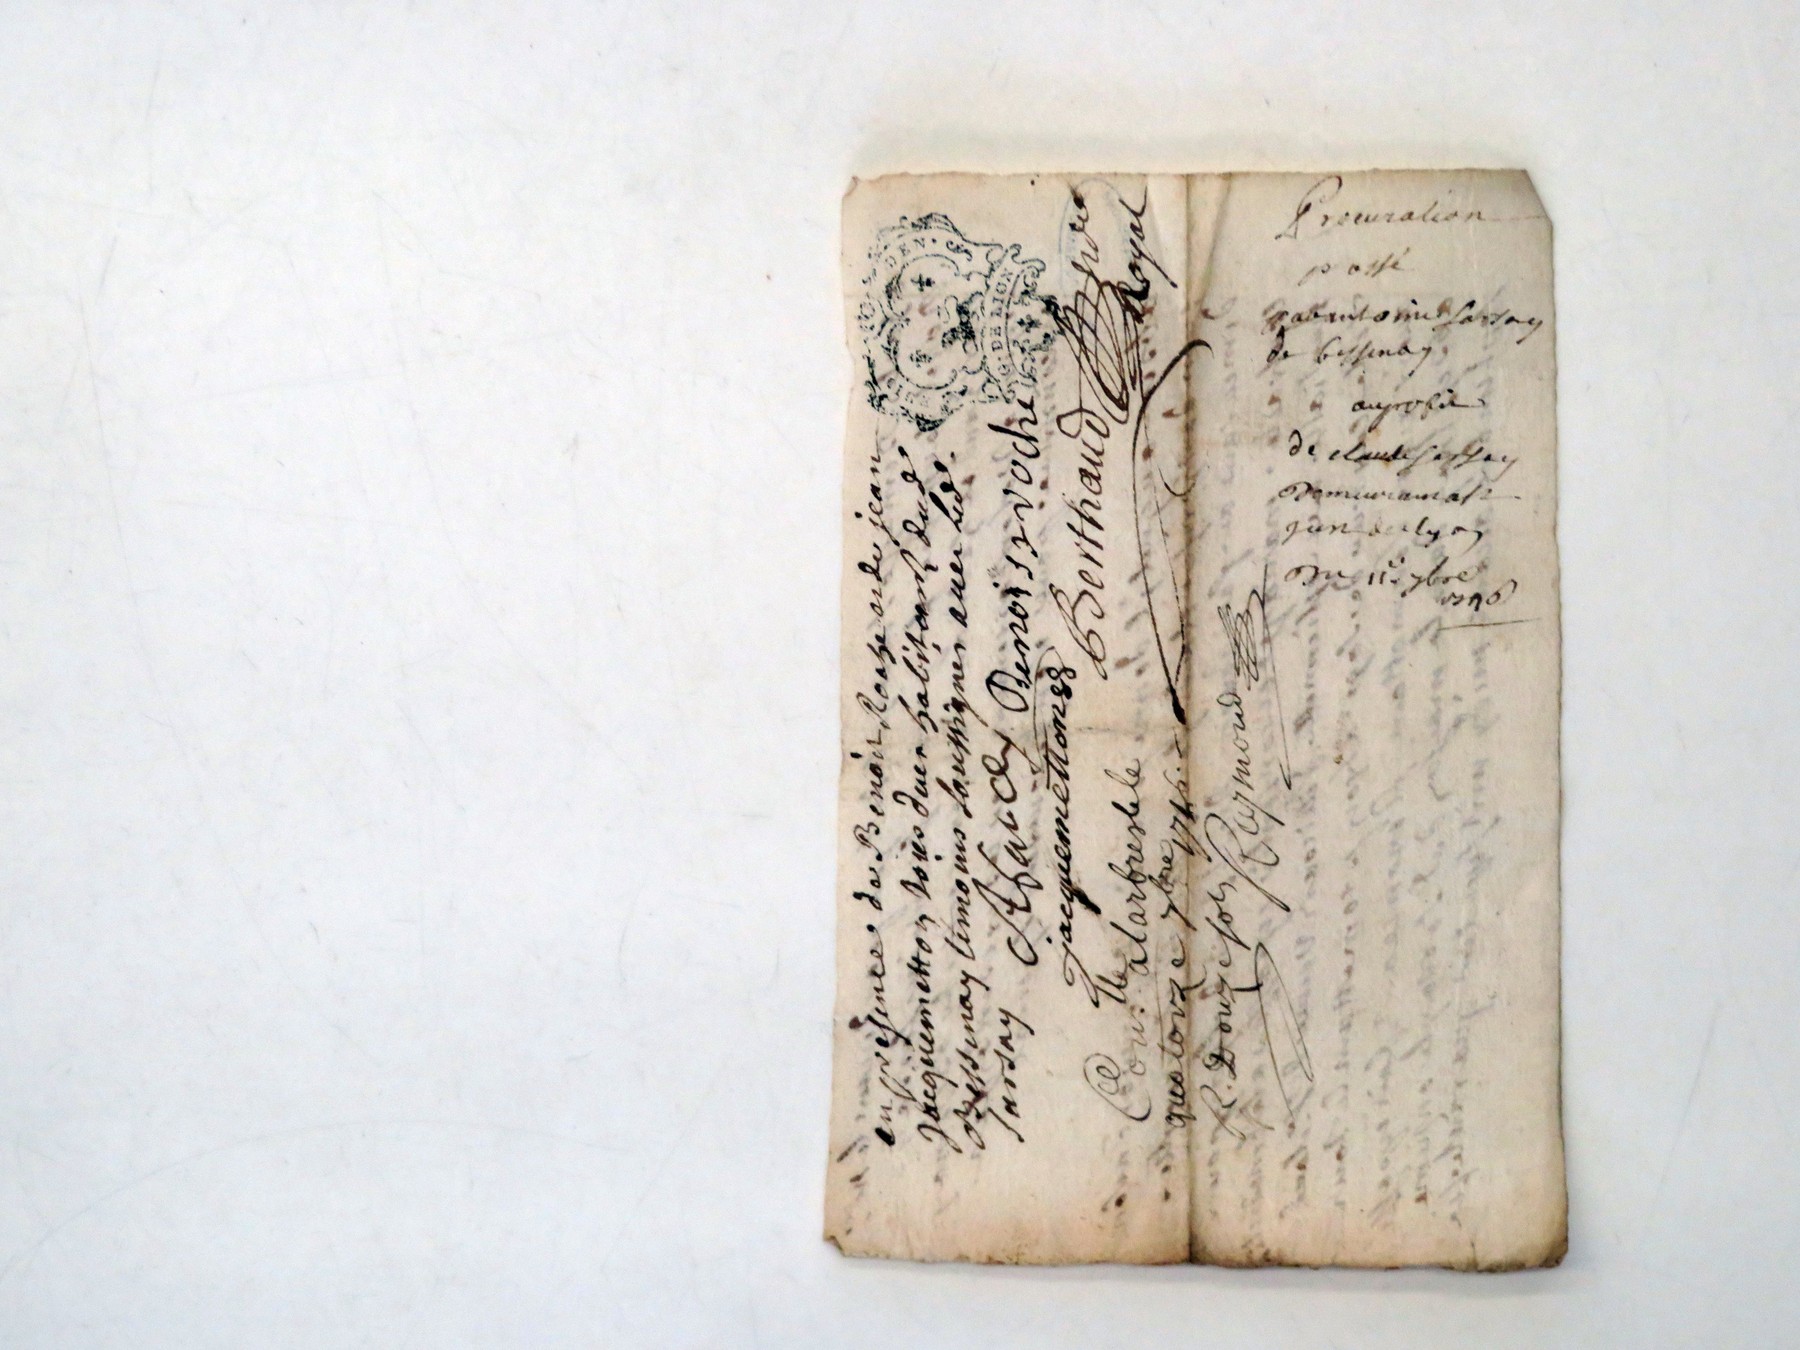 en presence de Benoit Roche et de jean
Jacquemetton tous deux habitants dud
Bessenay temoins soussignes avec led.
sarsay
Benoist roche
jacquemetton
Berthaud
Royal
Con. a larbresle
quatorze 7bre 1746.
R. Douze sols Raymond
GEN. DE LION
Procuration
passé
par antoine sarsay
de bessenay
au profit
de claude sarsay
Demeurant a
de lyon
Du 11e 7bre
1746